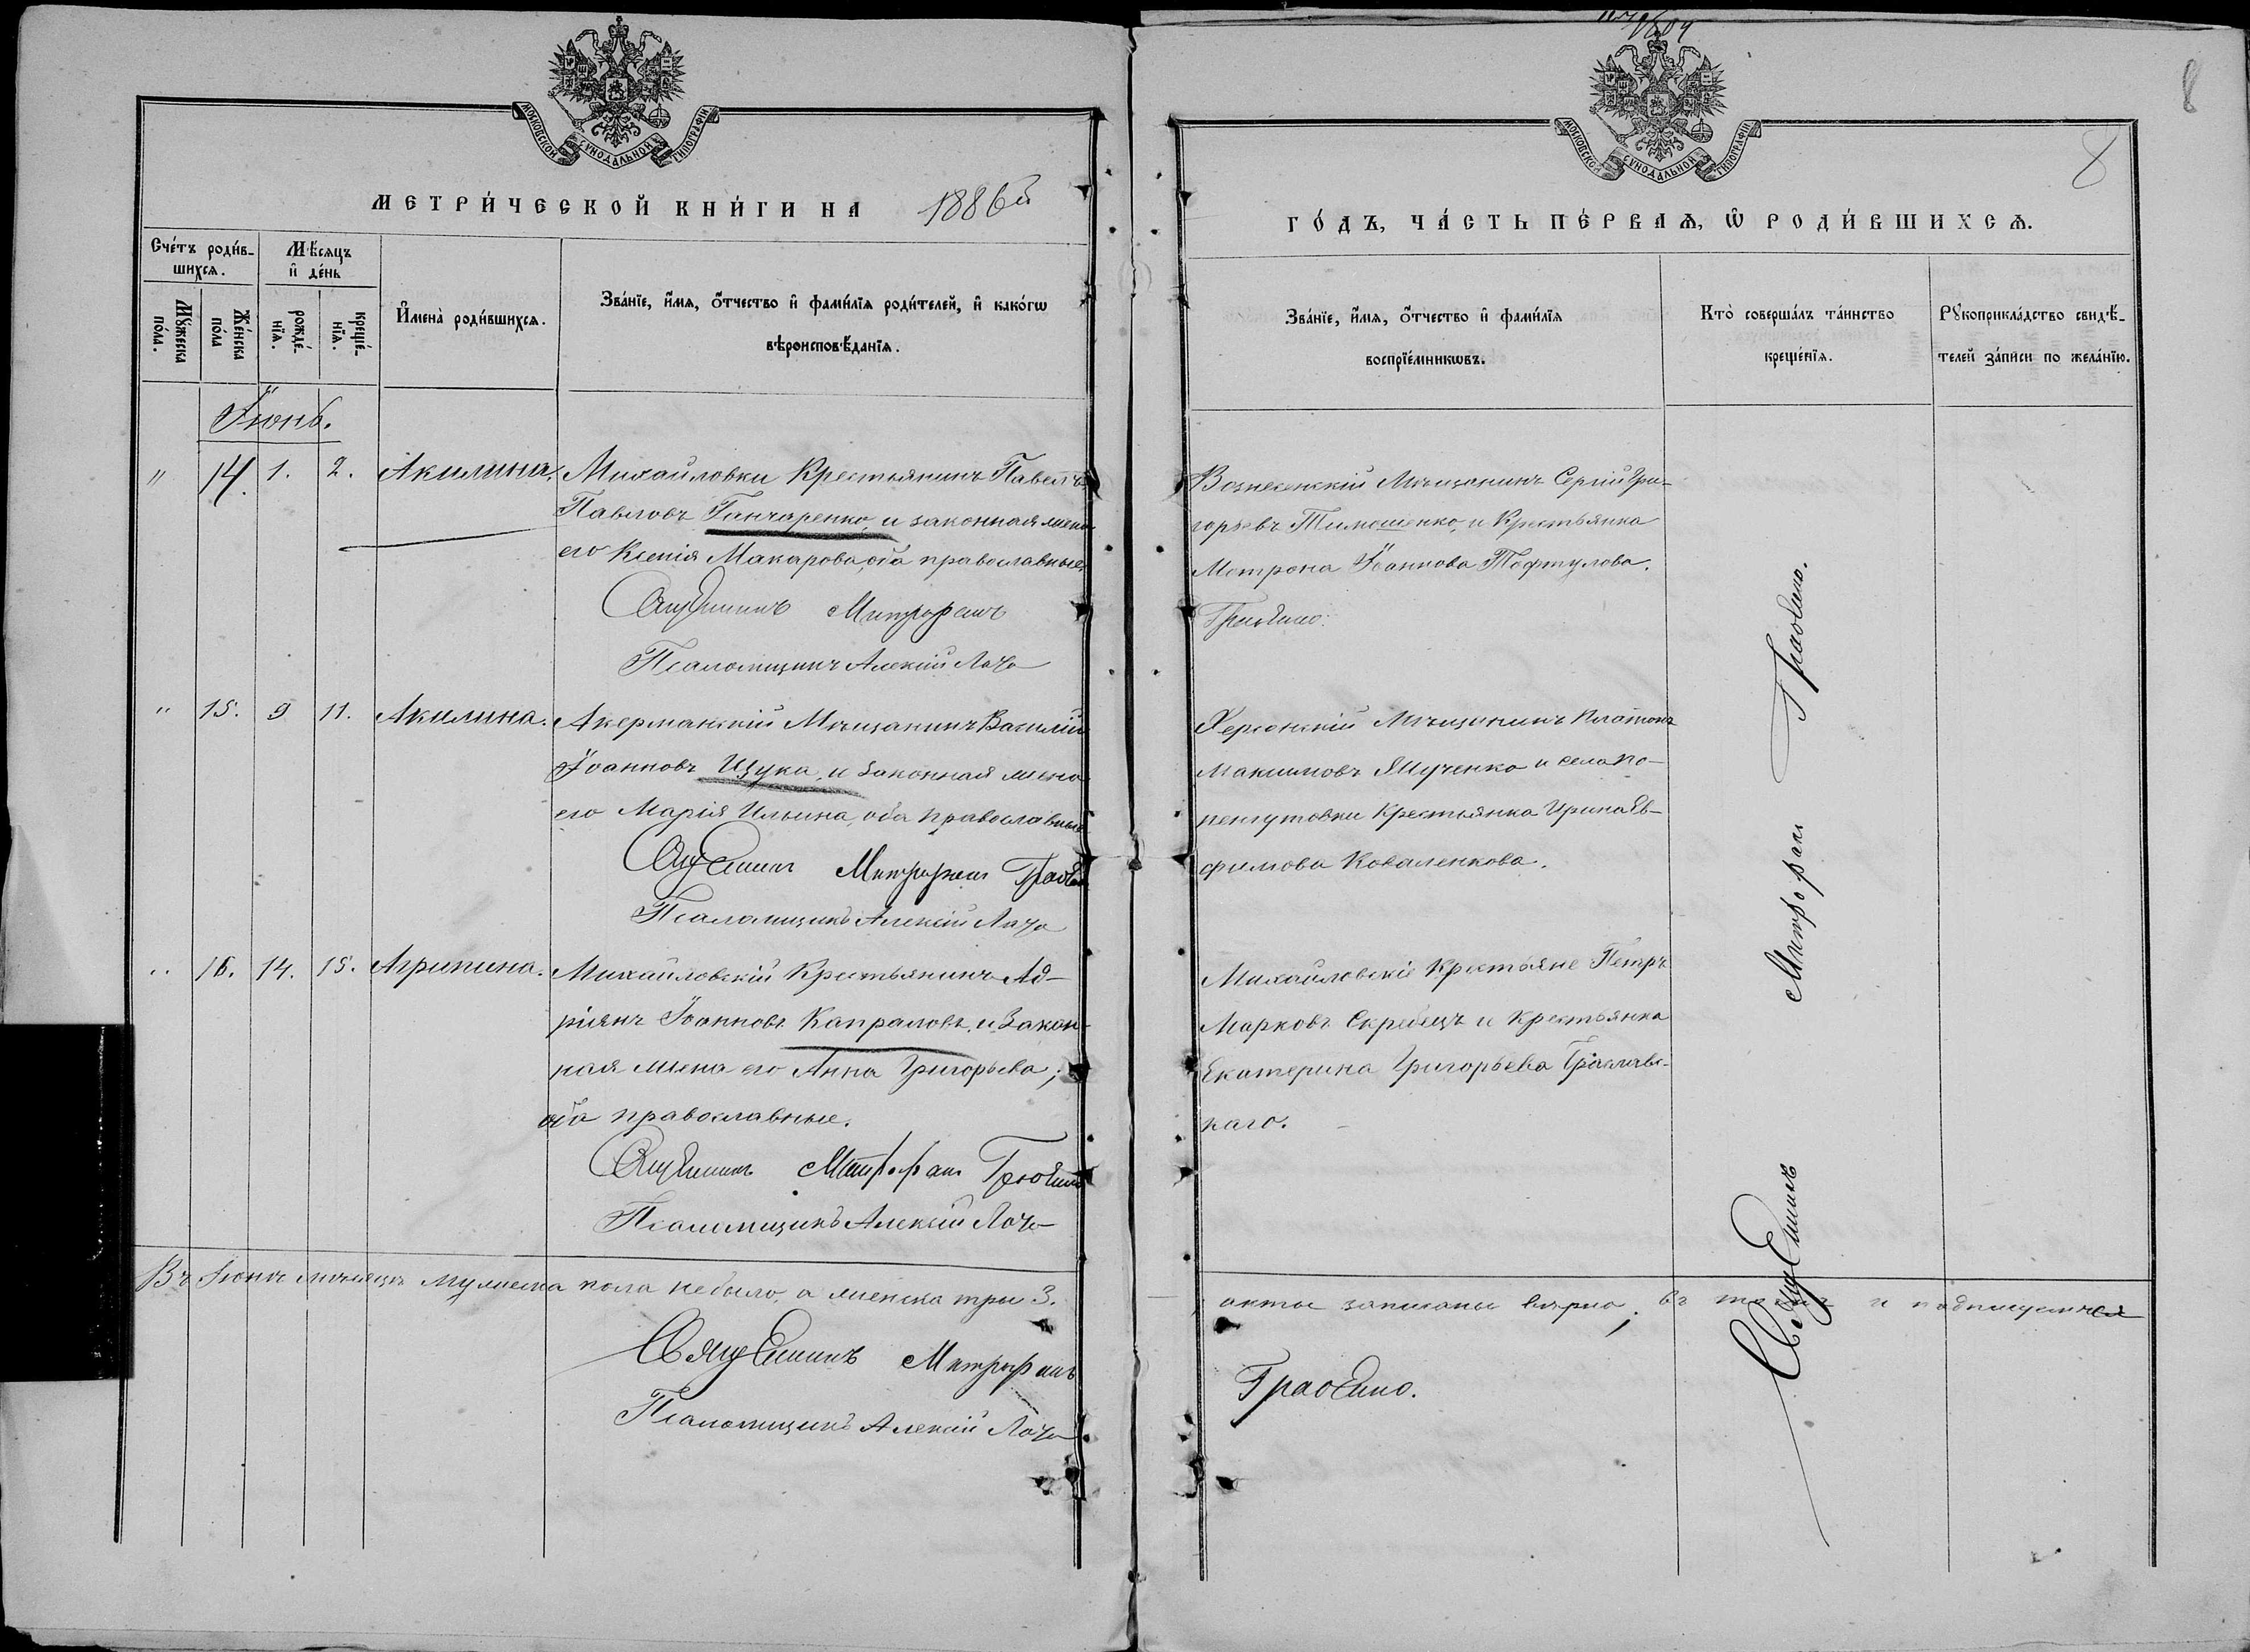 МОСКОВСКОЙ СѴНОДАЛЬНОЙ ТИПОГРАФІИ
МЕТРИ́ЧЕСКОЙ КНИ́ГИ НА 1886й
Сче́тъ роди́в-
шихсѧ.
Мѣ́сяцъ
и҆ де́нь
Мꙋ́жеска
по́ла.
Же́нска
по́ла
рожде́-
нїѧ.
креще́-
нїѧ.
И҆мена̀ роди́вшихсѧ.
Зва́нїе, и҆́мѧ, ѻ҆́тчество и҆ фами́лїѧ роди́телей, и҆ како́гѡ
вѣроисповѣ́данїѧ.
Іюнь.
" 14. 1. 2. Акилина.
Михайловки Крестьянинъ Павелъ
Павловъ Ганчаренко, и законная жена
его Ксенія Макарова, оба православные.
Священникъ Митрофанъ
Псаломщикъ Алексій
" 15. 9 11. Акилина.
Акерманскій Мѣщанинъ Василій
Іоанновъ Щука, и законная жена
его Марія Ильина, оба православные
Священникъ Митрофанъ
Псаломщикъ Алексій
" 16. 14. 15. Агрипина.
Михайловскій Крестьянинъ Ад-
ріянъ Іоанновъ Капраловъ, и закон-
ная жена его Анна Григорьева;
оба православные.
Священникъ Митрофанъ
Псаломщикъ Алексій
Въ Іюнѣ мѣсяцѣ мужеска пола небыло, а женска три 3.
Священникъ Митрофанъ
Псаломщикъ Алексій
8
8
МОСКОВСКОЙ СѴНОДАЛЬНОЙ ТИПОГРАФІИ
ГО́ДЪ, ЧА́СТЬ ПЕ́РВАѦ, Ѡ҆ РОДИ́ВШИХСѦ.
Зва́нїе, и҆́мѧ, ѻ҆́тчество и҆ фами́лїѧ
воспрїе́мникѡвъ.
Кто̀ соверша́лъ та́инство
креще́нїѧ.
Рꙋкоприкла́дство свидѣ́-
телей за́писи по жела́нїю.
Вознесенскій Мѣщанинъ Сергій Гри-
горьевъ Тимошенко, и Крестьянка
Матрона Іоаннова Тофтулова.
Херсонскій Мѣщанинъ Платонъ
Максимовъ Ящученко и села По-
пенгутовки Крестьянка Ирина Ев-
фимова Коваленкова.
Михайловскіе Крестьяне Петръ
Марковъ Скребецъ и Крестьянка
Екатерина Григорьева
каго.
Священникъ Митрофанъ
акты записаны вѣрно; въ и подписуемся